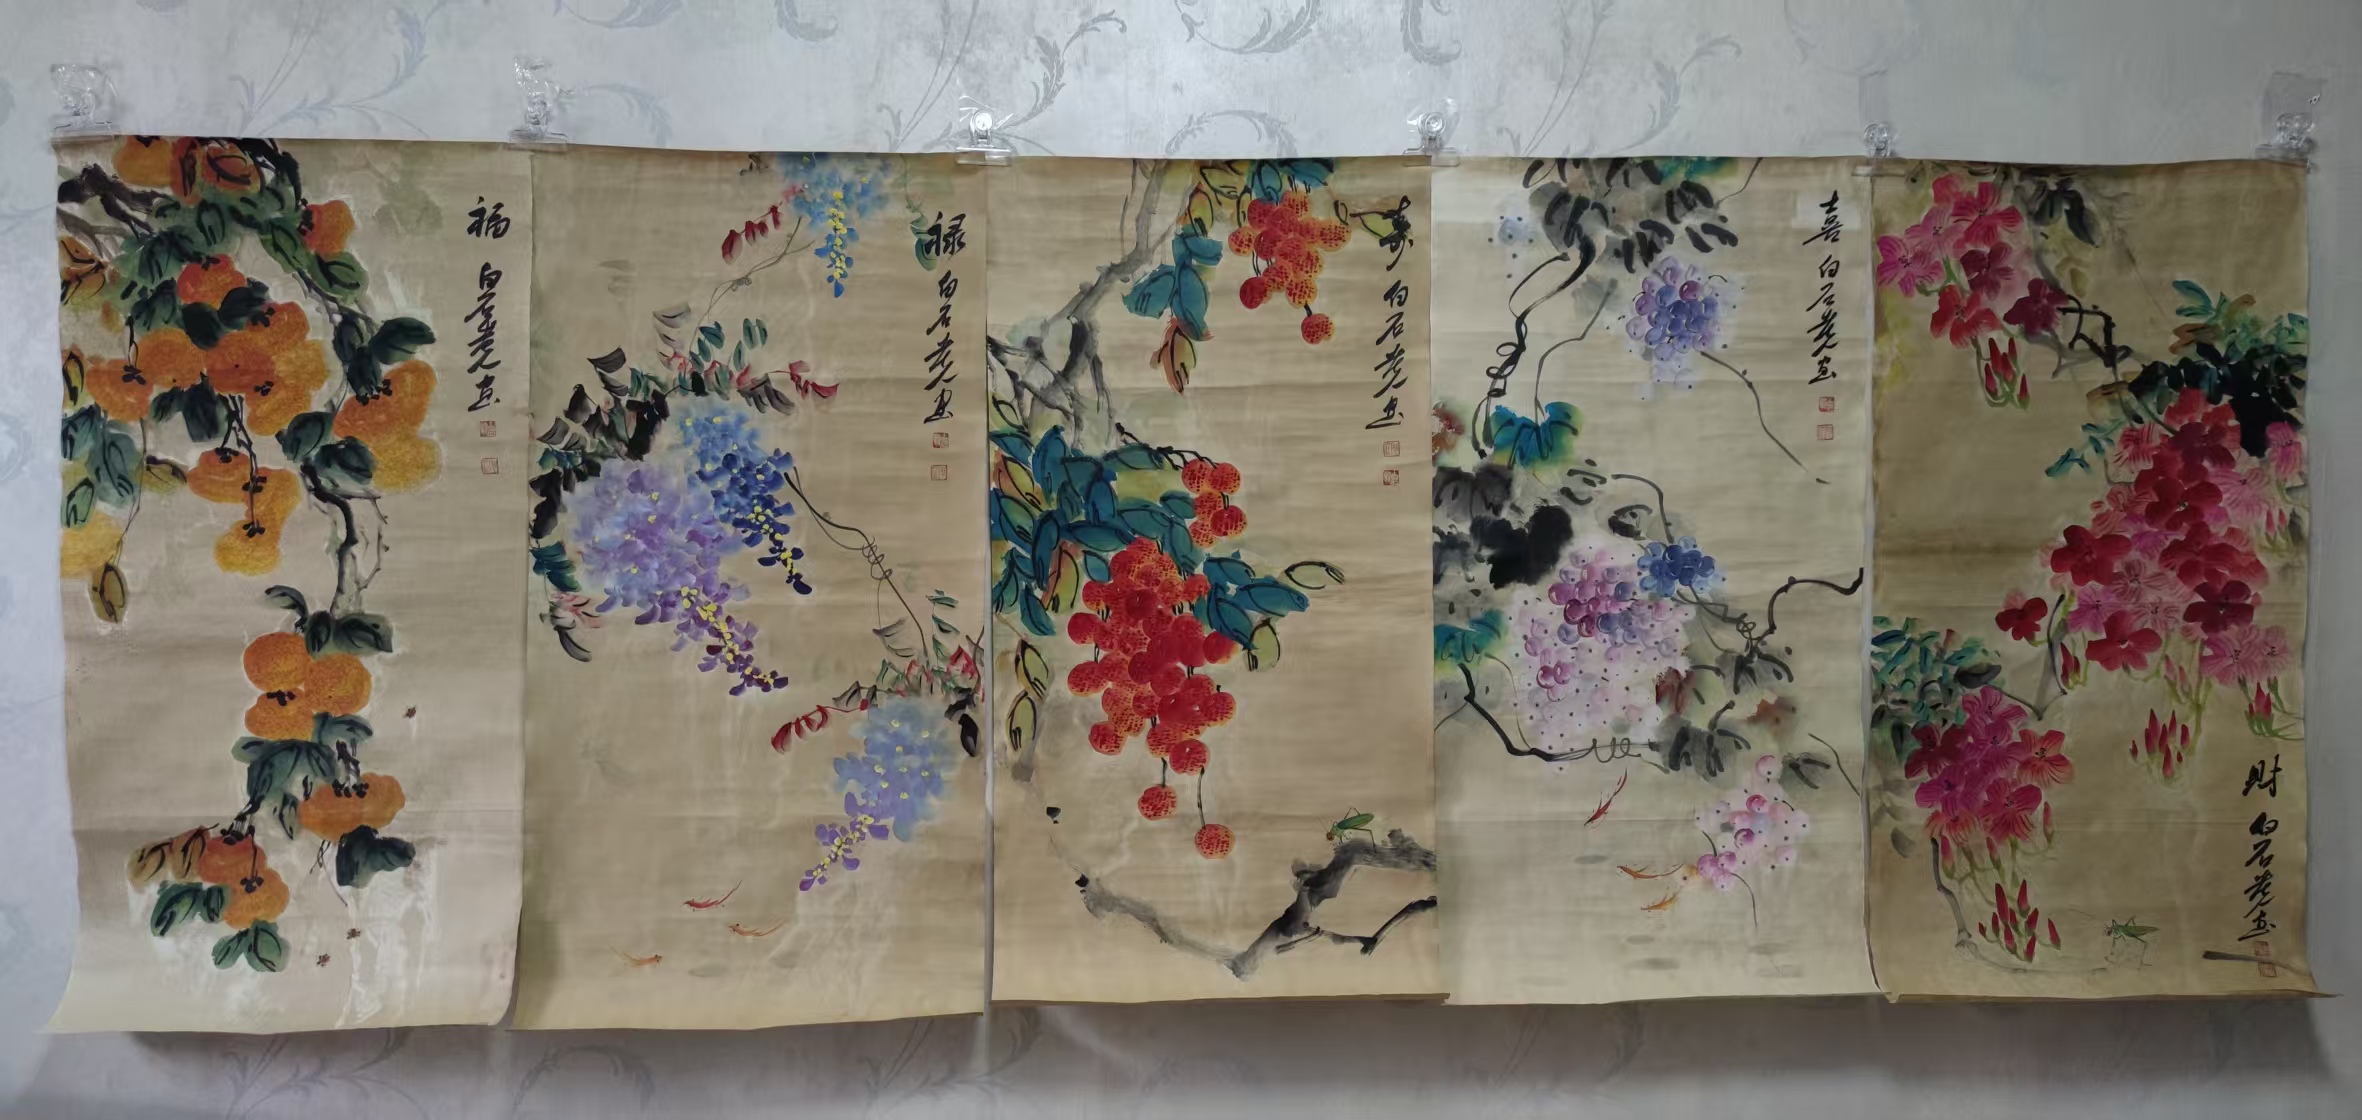 福
白石老人画
禄
白石老人画
寿
白石老人画
喜
白石老人画
财
白石老人画